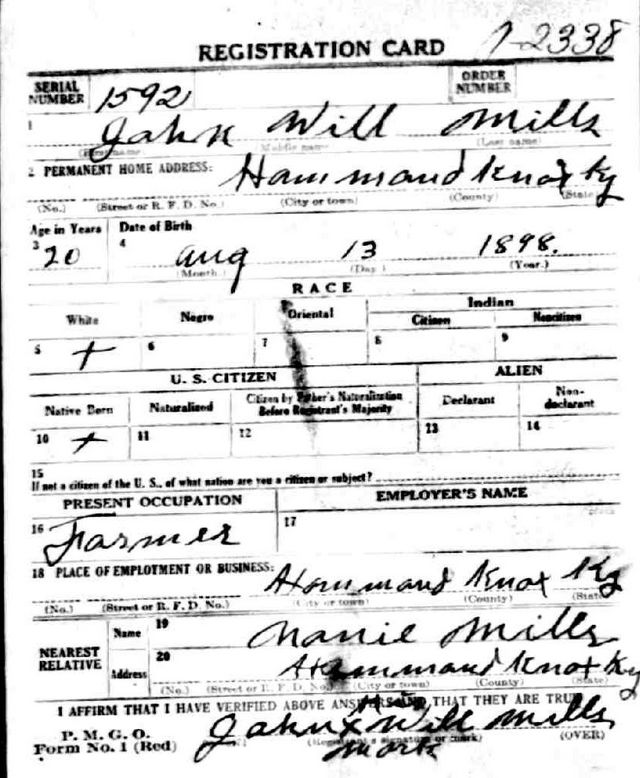 1-2338
REGISTRATION CARD
SERIAL NUMBER 1592 ORDER NUMBER
1 John Will Mills
(First name) (Middle name) (Last name)
2 PERMANENT HOME ADDRESS: Hammond Knox Ky
(No.) (Street or R. F. D. No.) (City or town) (County) (State)
Age in Years Date of Birth
3 20 4 Aug 13 1898.
(Month.) (Day.) (Year.)
RACE
White Negro Oriental Indian
Citizen Noncitizen
5 + 6 7 8 9
U. S. CITIZEN ALIEN
Native Born Naturalized Citizen by Father's Naturalization Before Registrant's Majority Declarant Non-declarant
10 + 11 12 13 14
15
If not a citizen of the U. S., of what nation are you a citizen or subject?
PRESENT OCCUPATION EMPLOYER'S NAME
16 Farmer 17
18 PLACE OF EMPLOYMENT OR BUSINESS: Hammond Knox Ky
(No.) (Street or R. F. D. No.) (City or town) (County) (State)
NEAREST RELATIVE Name 19 Nanie Mills
Address 20 Hammond Knox Ky
(No.) (Street or R. F. D. No.) (City or town) (County) (State)
I AFFIRM THAT I HAVE VERIFIED ABOVE ANSWERS AND THAT THEY ARE TRUE
P. M. G. O.
Form No. 1 (Red) John x Will Mills
(Registrant's signature or mark) (OVER)
mark